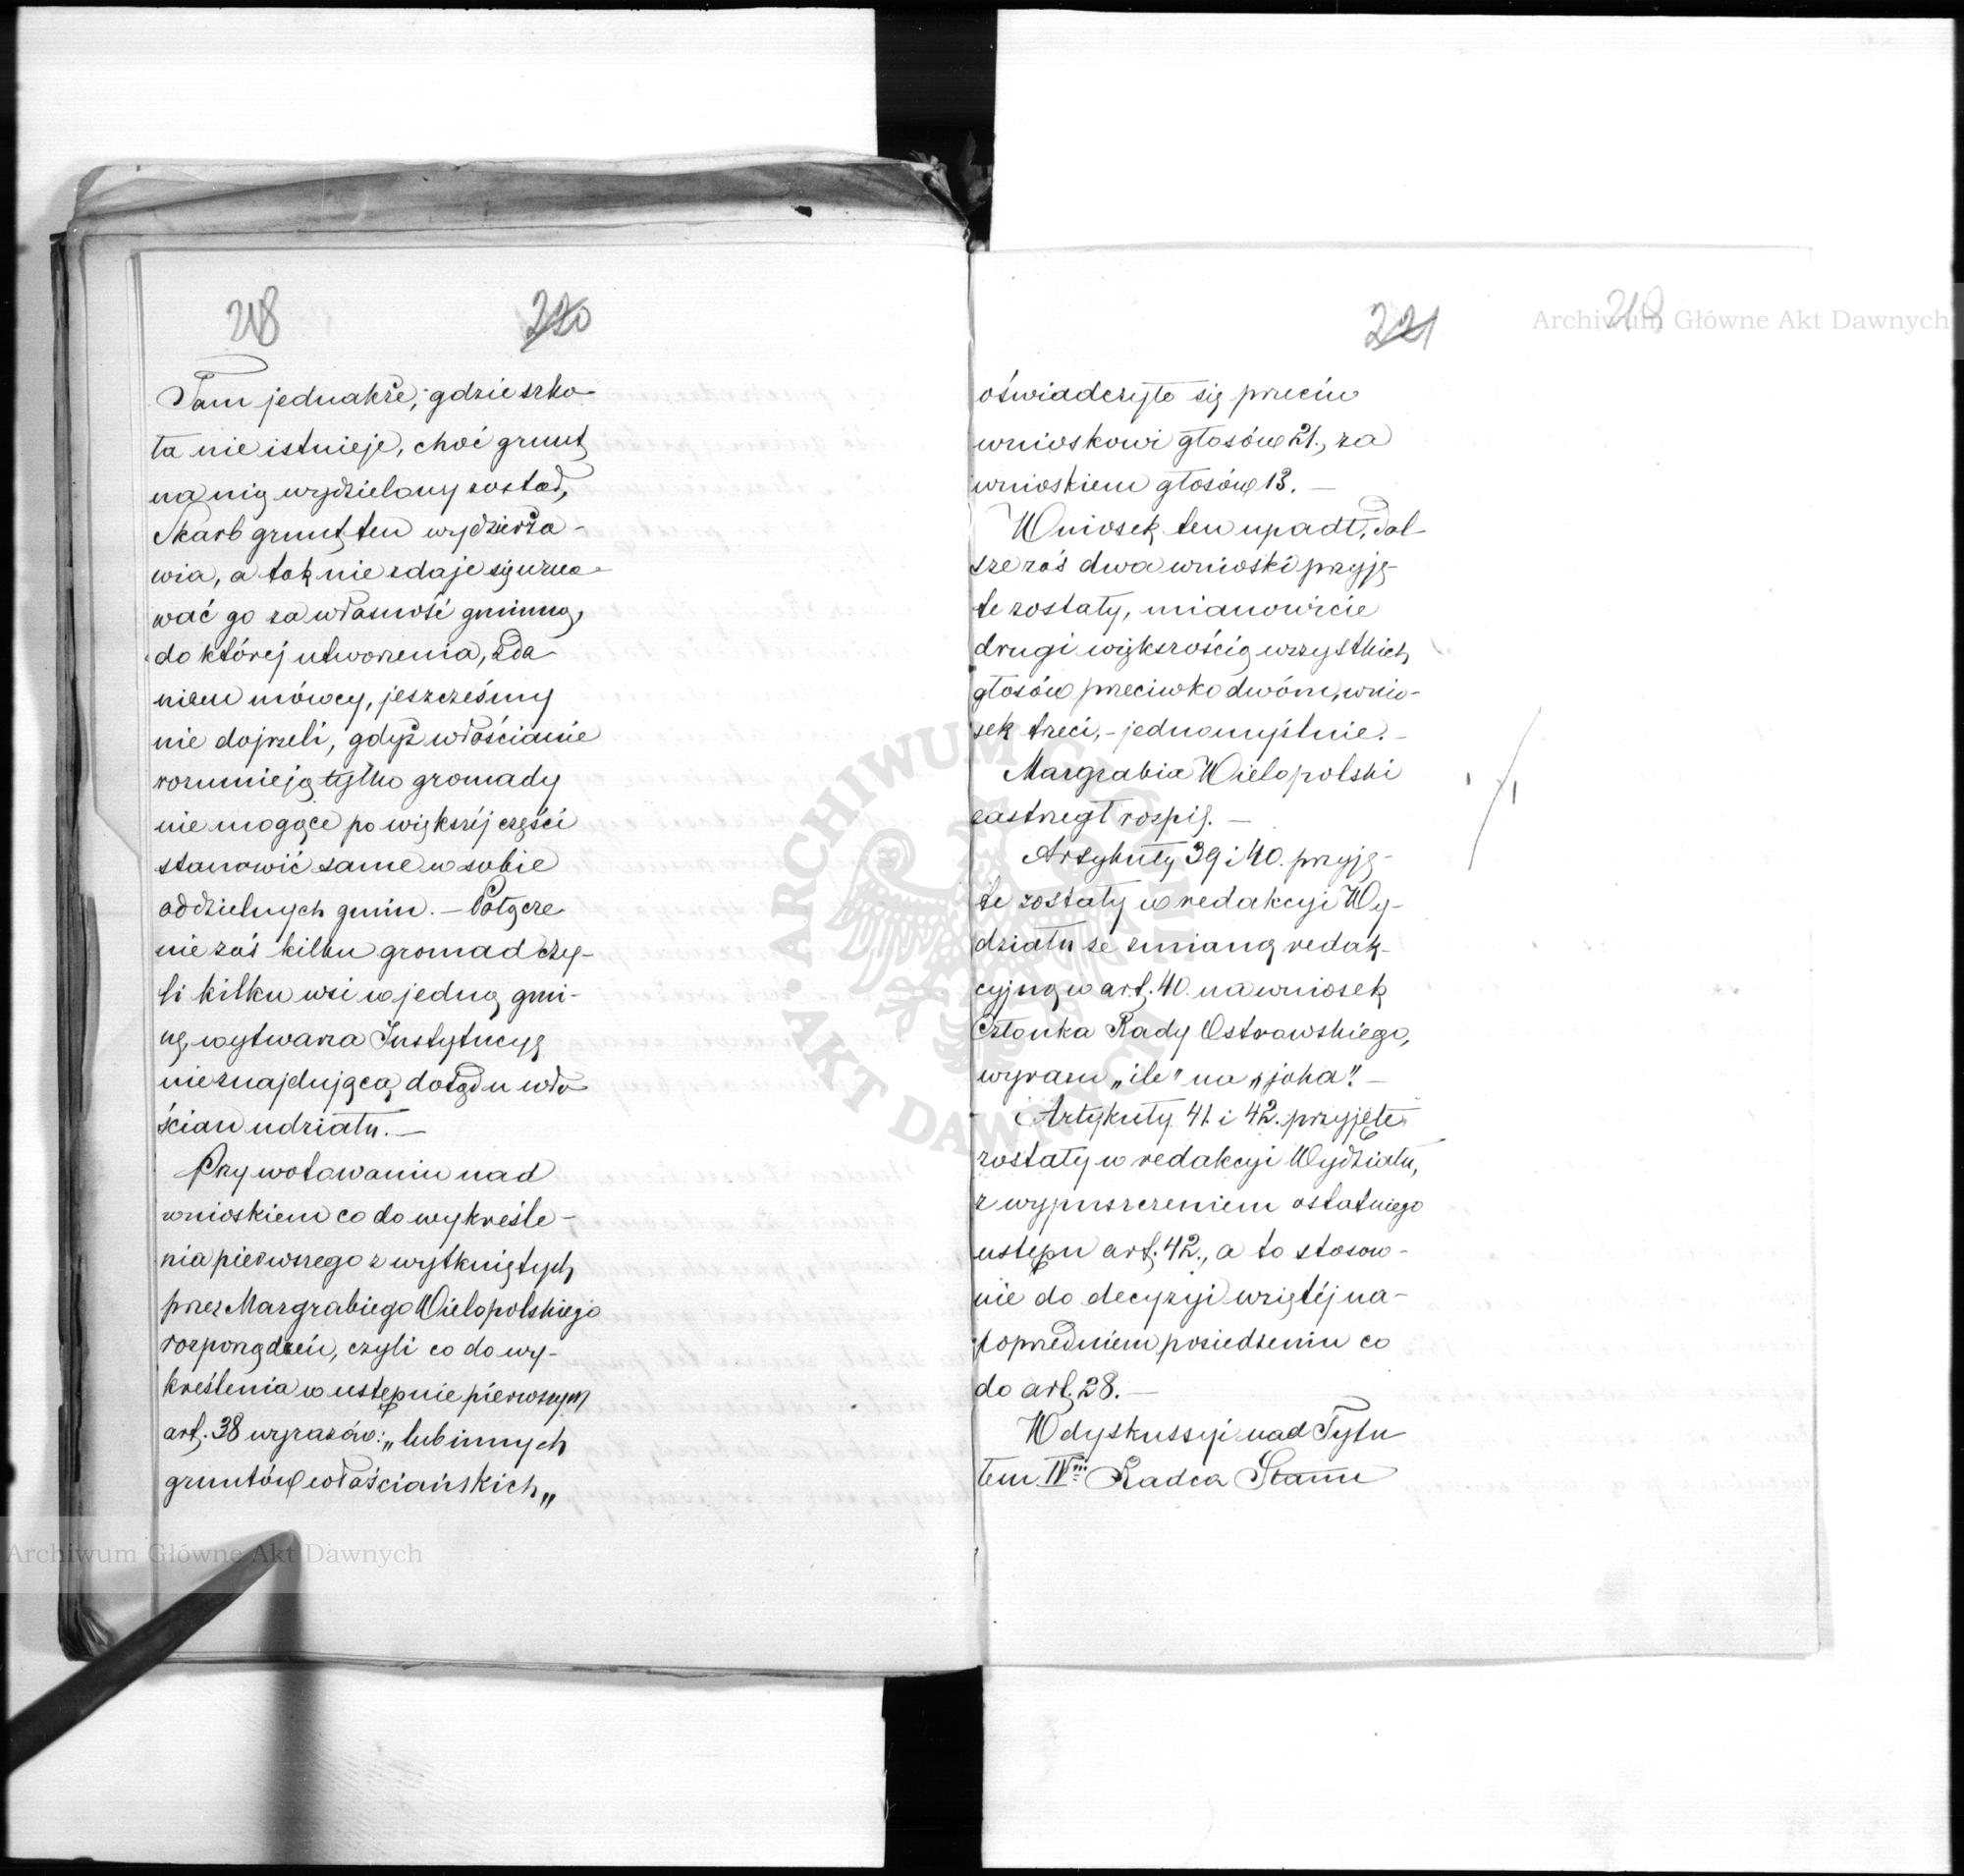 218 220
Tam jednakże, gdzie szko-
ła nie istnieje, choć grunt
na nię wydzielony został,
Skarb grunt ten wydzierża-
wia, a tak nie zdaje się uzna-
wać go za własność gminną,
do której utworzenia, zda-
niem mówcy, jeszcześmy
nie dojrzeli, gdyż włościanie
rozumieją tylko gromady
nie mogące po większéj części
stanowić same w sobie
oddzielnych gmin. — Połącze
nie zaś kilku gromad czy-
li kilku wsi w jedną gmi-
nę, wytwarza Instytucyę
nieznajdującą dotąd u wło
ścian udziału. —
Przy wotowaniu nad
wnioskiem co do wykreśle-
nia pierwszego z wytkniętych
przez Margrabiego Wielopolskiego
rozporządzeń, czyli co do wy-
kreślenia w ustępie pierwszym
art. 38 wyrazów: „lub innych
gruntów włościańskich„
221 219
oświadczyło się przeciw
wnioskowi głosów 21., za
wnioskiem głosów 13. —
Wniosek ten upadł, dal-
sze zaś dwa wnioski przyję-
te zostały, mianowicie
drugi większością wszystkich
głosów przeciwko dwóm, wnio-
sek trzeci, - jednomyślnie. -
Margrabia Wielopolski
zastrzegł rozpis. —
Artykuły 39 i 40. przyję-
te zostały w redakcyi Wy-
działu ze zmianą redak-
cyjną w art. 40. na wniosek
Członka Rady Ostrowskiego,
wyrazu „ile" na „joha". —
Artykuły 41. i 42. przyjęte
zostały w redakcyi Wydziału,
z wypuszczeniem ostatniego
ustępu art. 42., a to stosow-
nie do decyzyi wziętéj na-
poprzedniem posiedzeniu co
do art. 28. —
W dyskussyi nad Tytu
łem IVm Radca Stanu
Archiwum Główne Akt Dawnych
Archiwum Główne Akt Dawnych
ARCHIWUM GŁÓWNE AKT DAWNYCH